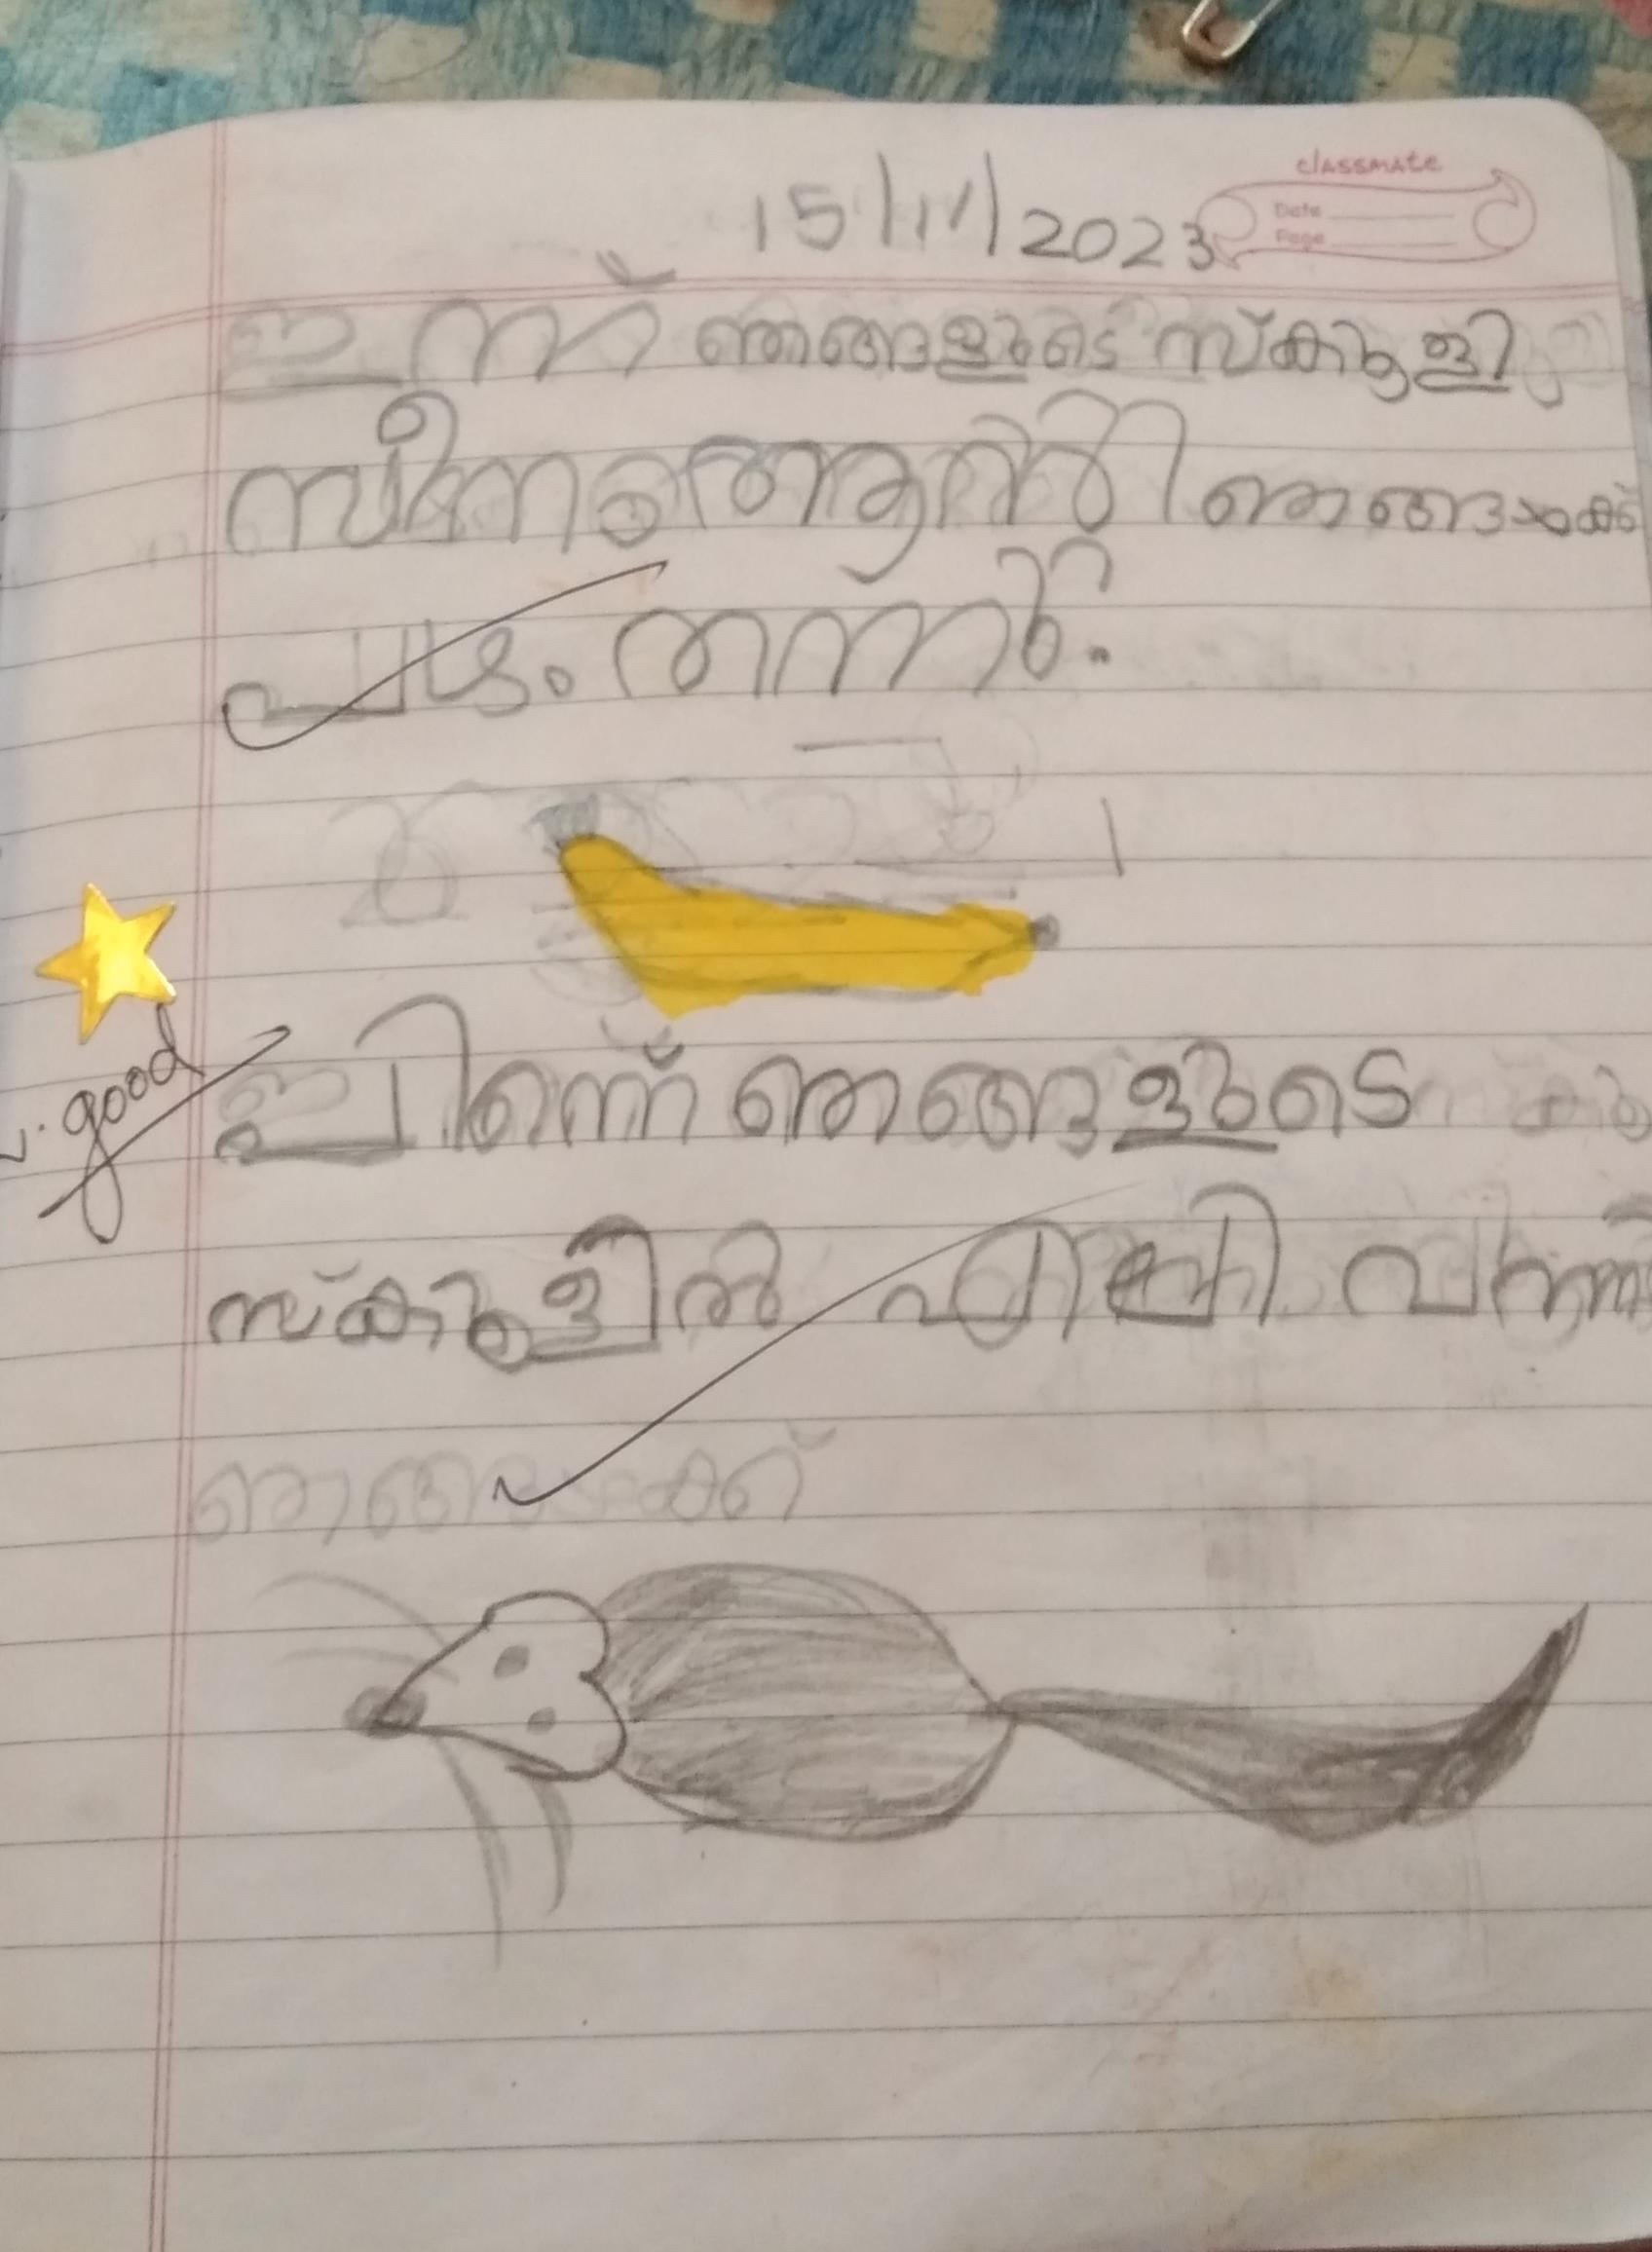 15/11/2023
classmate
Date
Page
ഇന്ന് ഞങ്ങളുടെ സ്കൂളി
സീന ആന്റി ഞങ്ങൾക്ക്
പഴം തന്നു.
ഇന്ന് ഞങ്ങളുടെ
v. good
സ്കൂളിൽ എലി വന്നു
ഞങ്ങൾക്ക്